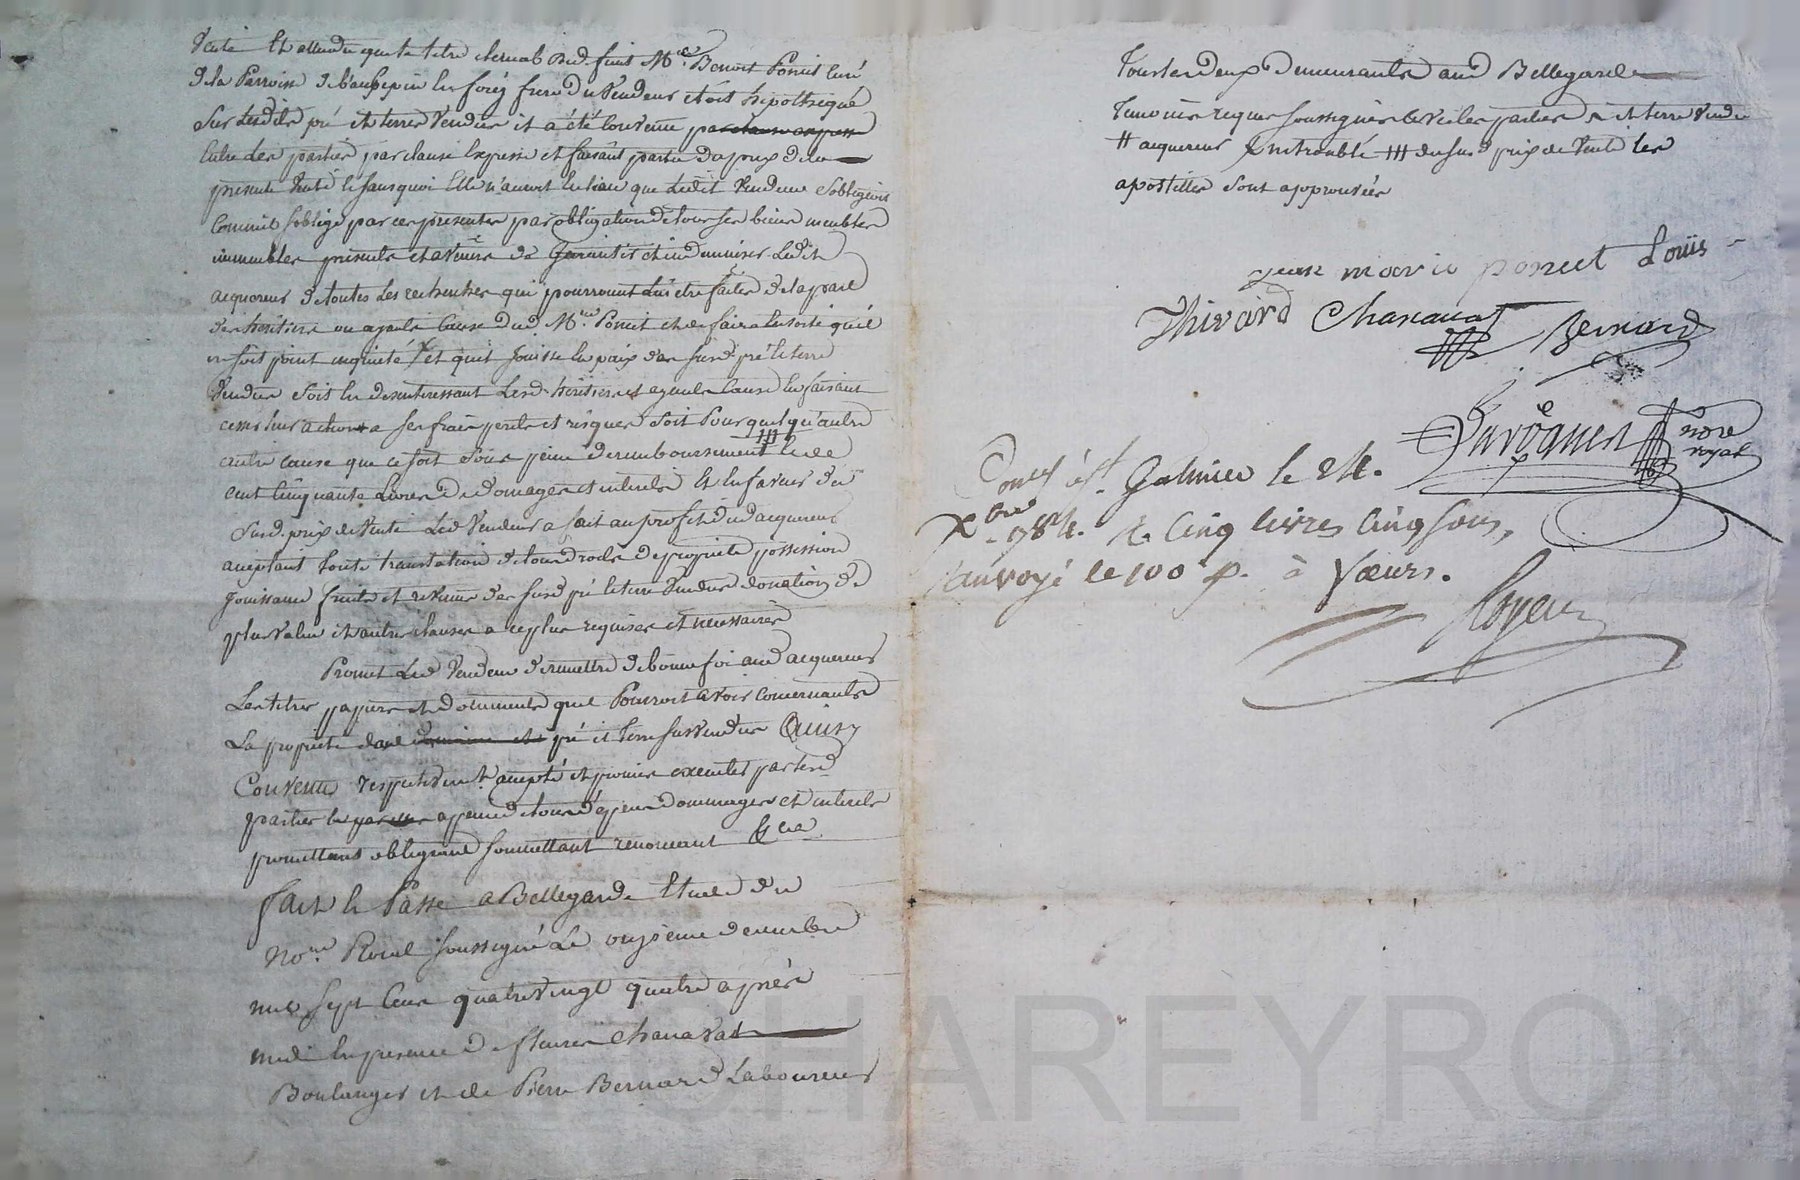 vente et attendu que le titre clerical dud. feu Mre Benoit Poncet curé
de la Parroisse de en forez frere du vendeur etoit hipothequé
sur lesdits pré et terre vendus il a été convenu par clause expresse
entre les parties par clause expresse et faisant partie du prix de la
presente vente et sans quoi elle n'auroit eu lieu que ledit vendeur s'obligeroit
comme s'oblige par ces presentes par obligation de tous ses biens meubles
immeubles presents et avenir de garantir et indemniser ledit
acquereur de toutes les recherches qui pourroient lui etre faites de la part
des heritiers ou ayants cause dud Mre Poncet et de faire en sorte qu'il
ne soit point inquieté et qu'il jouisse en paix des susd. pré et terre
vendus soit en desinteressant lesd. heritiers et ayants cause en faisant
cesser leur action a ses frais perils et risques soit pour quelqu'autre
autre cause que ce soit sous peine de remboursement et de
cent cinquante livres de domages et interets et en faveur du
susd. prix de vente led vendeur a fait au profit dud acquereur
acceptant toute translation de tous droits de proprieté possession
jouissance fruits et revenus des susd pré et terre vendus donation de
plus value et autres clauses a ce plus requises et necessaires
Promet led vendeur de remettre de bonne foi aud acquereur
les titres papiers et documents qu'il pourroit avoir concernants
la proprieté pré et terre susvendus Ainsy
convenu respectivemt. accepté et promis executer par lesd
parties a peine de tous depens dommages et interets
promettant obligeant soumettant renonceant &ca.
fait et Passé a Bellegarde Etude du
Nore. Roial soussigné le onzieme decembre
mil sept cens quatrevingt quatre après
midi en presence de fleury Chanavat
Boulanger et de Pierre Bernard Laboureur
tous les deux demeurants aud Bellegarde
temoins requis soussignés avec les parties et terre vendu
# acquereur ni troublé ### du susd prix de vente les
apostilles sont approuvées
jean marie poncet Loüis
Thivard Chanavat Bernard
notre
royal
Conllé à St. Galmier le 24.
Xbre 1784. R. cinq livres cinq sous,
renvoyé le 100e d. à
CHAREYRON